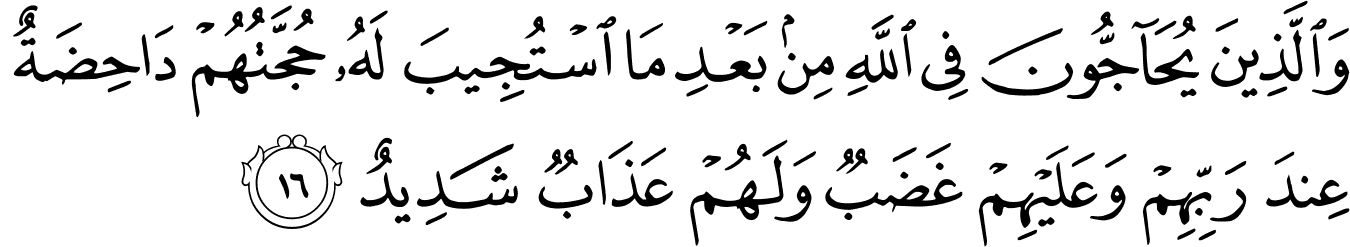 وَٱلَّذِينَ يُحَآجُّونَ فِى ٱللَّهِ مِنۢ بَعْدِ مَا ٱسْتُجِيبَ لَهُۥ حُجَّتُهُمْ دَاحِضَةٌ
عِندَ رَبِّهِمْ وَعَلَيْهِمْ غَضَبٌ وَلَهُمْ عَذَابٌ شَدِيدٌ ١٦